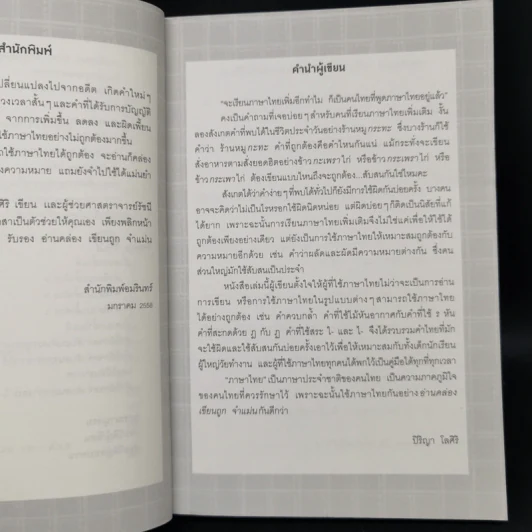 สำนักพิมพ์
เปลี่ยนแปลงไปจากอดีต เกิดคำใหม่ๆ
วงเวลาสั้นๆ และคำที่ได้รับการบัญญัติ
จากการเพิ่มขึ้น ลดลง และผิดเพี้ยน
ใช้ภาษาไทยอย่างไม่ถูกต้องมากขึ้น
ใช้ภาษาไทยได้ถูกต้อง จะอ่านก็คล่อง
ความหมาย แถมยังจำไปใช้ได้แม่นยำ
ศิริ เขียน และผู้ช่วยศาสตราจารย์รัชนี
มาเป็นตัวช่วยให้คุณเอง เพียงพลิกหน้า
รับรอง อ่านคล่อง เขียนถูก จำแม่น
สำนักพิมพ์อมรินทร์
มกราคม 2556
คำนำผู้เขียน
“จะเรียนภาษาไทยเพิ่มอีกทำไม ก็เป็นคนไทยที่พูดภาษาไทยอยู่แล้ว”
คงเป็นคำถามที่เจอบ่อยๆ สำหรับคนที่เรียนภาษาไทยเพิ่มเติม งั้น
ลองสังเกตคำที่พบได้ในชีวิตประจำวันอย่างร้านหมูกระทะ ซึ่งบางร้านก็ใช้
คำว่า ร้านหมูกะทะ คำที่ถูกต้องคือคำไหนกันแน่ แม้กระทั่งจะเขียน
สั่งอาหารตามสั่งยอดฮิตอย่างข้าวกะเพราไก่ หรือข้าวกระเพราไก่ หรือ
ข้าวกระเพาไก่ ต้องเขียนแบบไหนถึงจะถูกต้อง...สับสนกันใช่ไหมคะ
สังเกตได้ว่าคำง่ายๆ ที่พบได้ทั่วไปก็ยังมีการใช้ผิดกันบ่อยครั้ง บางคน
อาจจะคิดว่าไม่เป็นไรหรอกใช้ผิดนิดหน่อย แต่ผิดบ่อยๆ ก็ติดเป็นนิสัยที่แก้
ได้ยาก เพราะฉะนั้นการเรียนภาษาไทยเพิ่มเติมจึงไม่ใช่แค่เพื่อให้ใช้ได้
ถูกต้องเพียงอย่างเดียว แต่ยังเป็นการใช้ภาษาไทยให้เหมาะสมถูกต้องกับ
ความหมายอีกด้วย เช่น คำว่าผลัดและผัดมีความหมายต่างกัน ซึ่งคน
ส่วนใหญ่มักใช้สับสนเป็นประจำ
หนังสือเล่มนี้ผู้เขียนตั้งใจให้ผู้ที่ใช้ภาษาไทยไม่ว่าจะเป็นการอ่าน
การเขียน หรือการใช้ภาษาไทยในรูปแบบต่างๆ สามารถใช้ภาษาไทย
ได้อย่างถูกต้อง เช่น คำควบกล้ำ คำที่ใช้ไม้หันอากาศกับคำที่ใช้ ร หัน
คำที่สะกดด้วย ฎ กับ ฏ คำที่ใช้สระ ใ- และ ไ- จึงได้รวบรวมคำไทยที่มัก
จะใช้ผิดและใช้สับสนกันบ่อยครั้งเอาไว้เพื่อให้เหมาะสมกับทั้งเด็กนักเรียน
ผู้ใหญ่วัยทำงาน และผู้ที่ใช้ภาษาไทยทุกคนได้พกไว้เป็นคู่มือได้ทุกที่ทุกเวลา
“ภาษาไทย” เป็นภาษาประจำชาติของคนไทย เป็นความภาคภูมิใจ
ของคนไทยที่ควรรักษาไว้ เพราะฉะนั้นใช้ภาษาไทยกันอย่าง อ่านคล่อง
เขียนถูก จำแม่น กันดีกว่า
ปิริญา โลศิริ